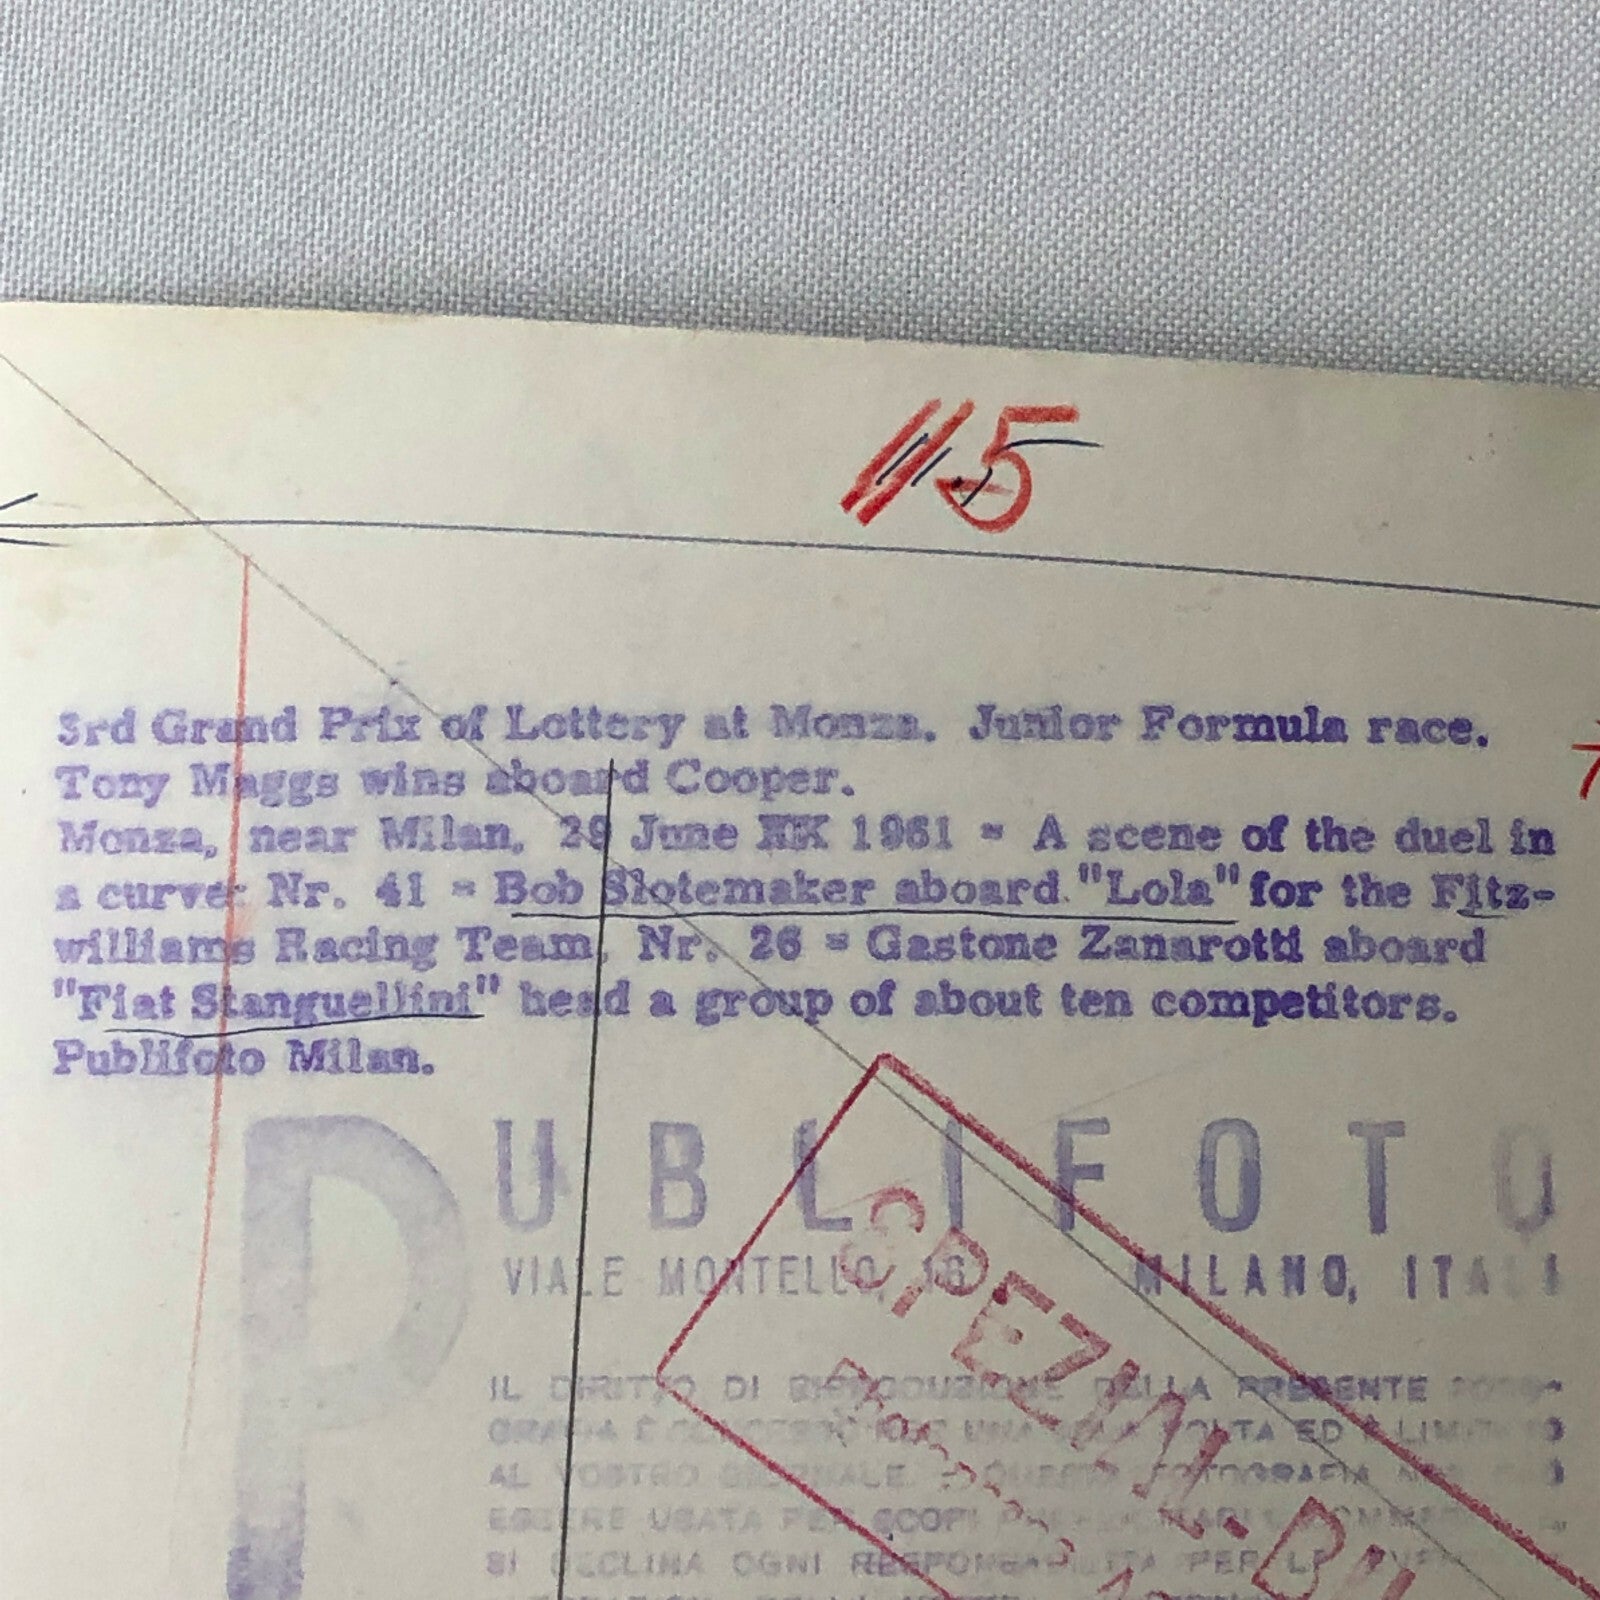 115
3rd Grand Prix of Lottery at Monza. Junior Formula race.
Tony Maggs wins aboard Cooper.
Monza, near Milan, 29 June XX 1961 = A scene of the duel in
a curve: Nr. 41 = Bob Slotemaker aboard "Lola" for the Fitz-
williams Racing Team, Nr. 26 = Gastone Zanarotti aboard
"Fiat Stanguellini" head a group of about ten competitors.
Publifoto Milan.
PUBLIFOTO
VIALE MONTELLO, 16 MILANO, ITALI
IL DIRITTO DI RIPRODUZIONE DELLA PRESENTE
UNA VOLTA ED È
AL VOSTRO GIORNALE. QUESTA FOTOGRAFIA
ESSERE USATA PER SCOPI
SI DECLINA OGNI RESPONSABILITA PER LE
SPEZIAL-